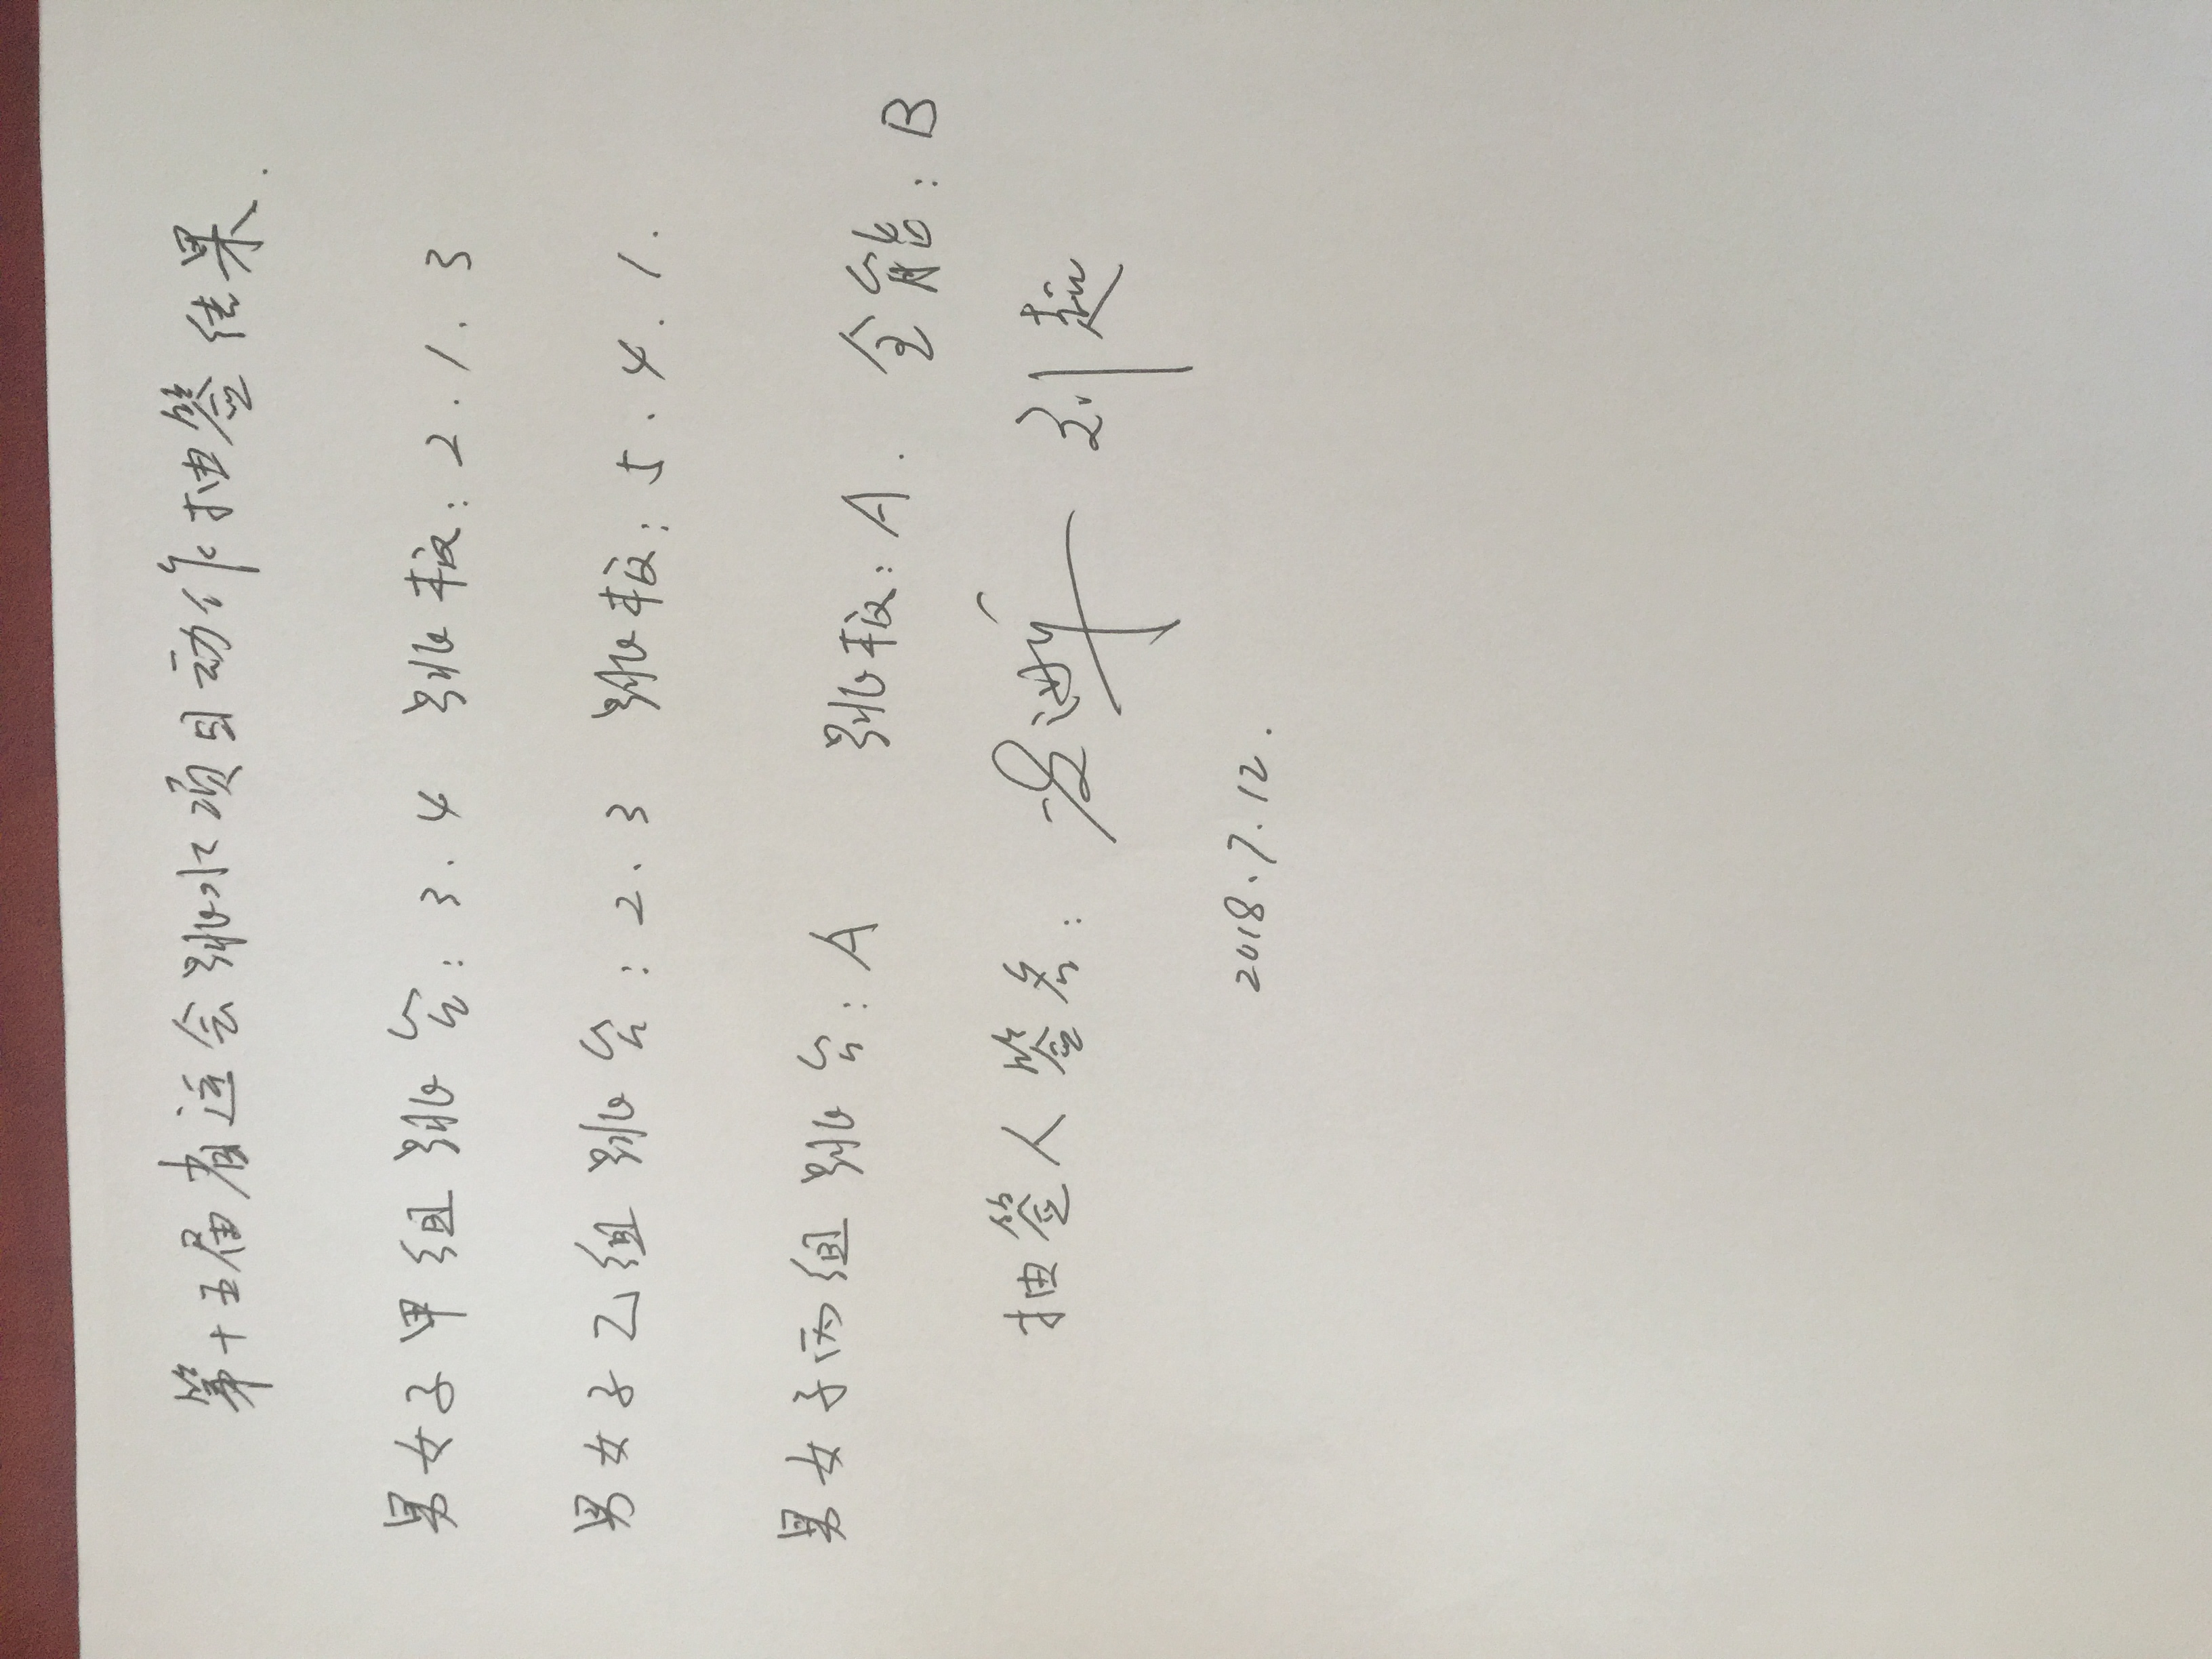 第十五届省运会跳水项目动作抽签结果.
男女子甲组跳台:3.4 跳板:2.1.3
男女子乙组跳台:2.3 跳板:5.4.1.
男女子丙组跳台:A 跳板:A. 全能:B
抽签人签名: 刘赵
2018.7.12.